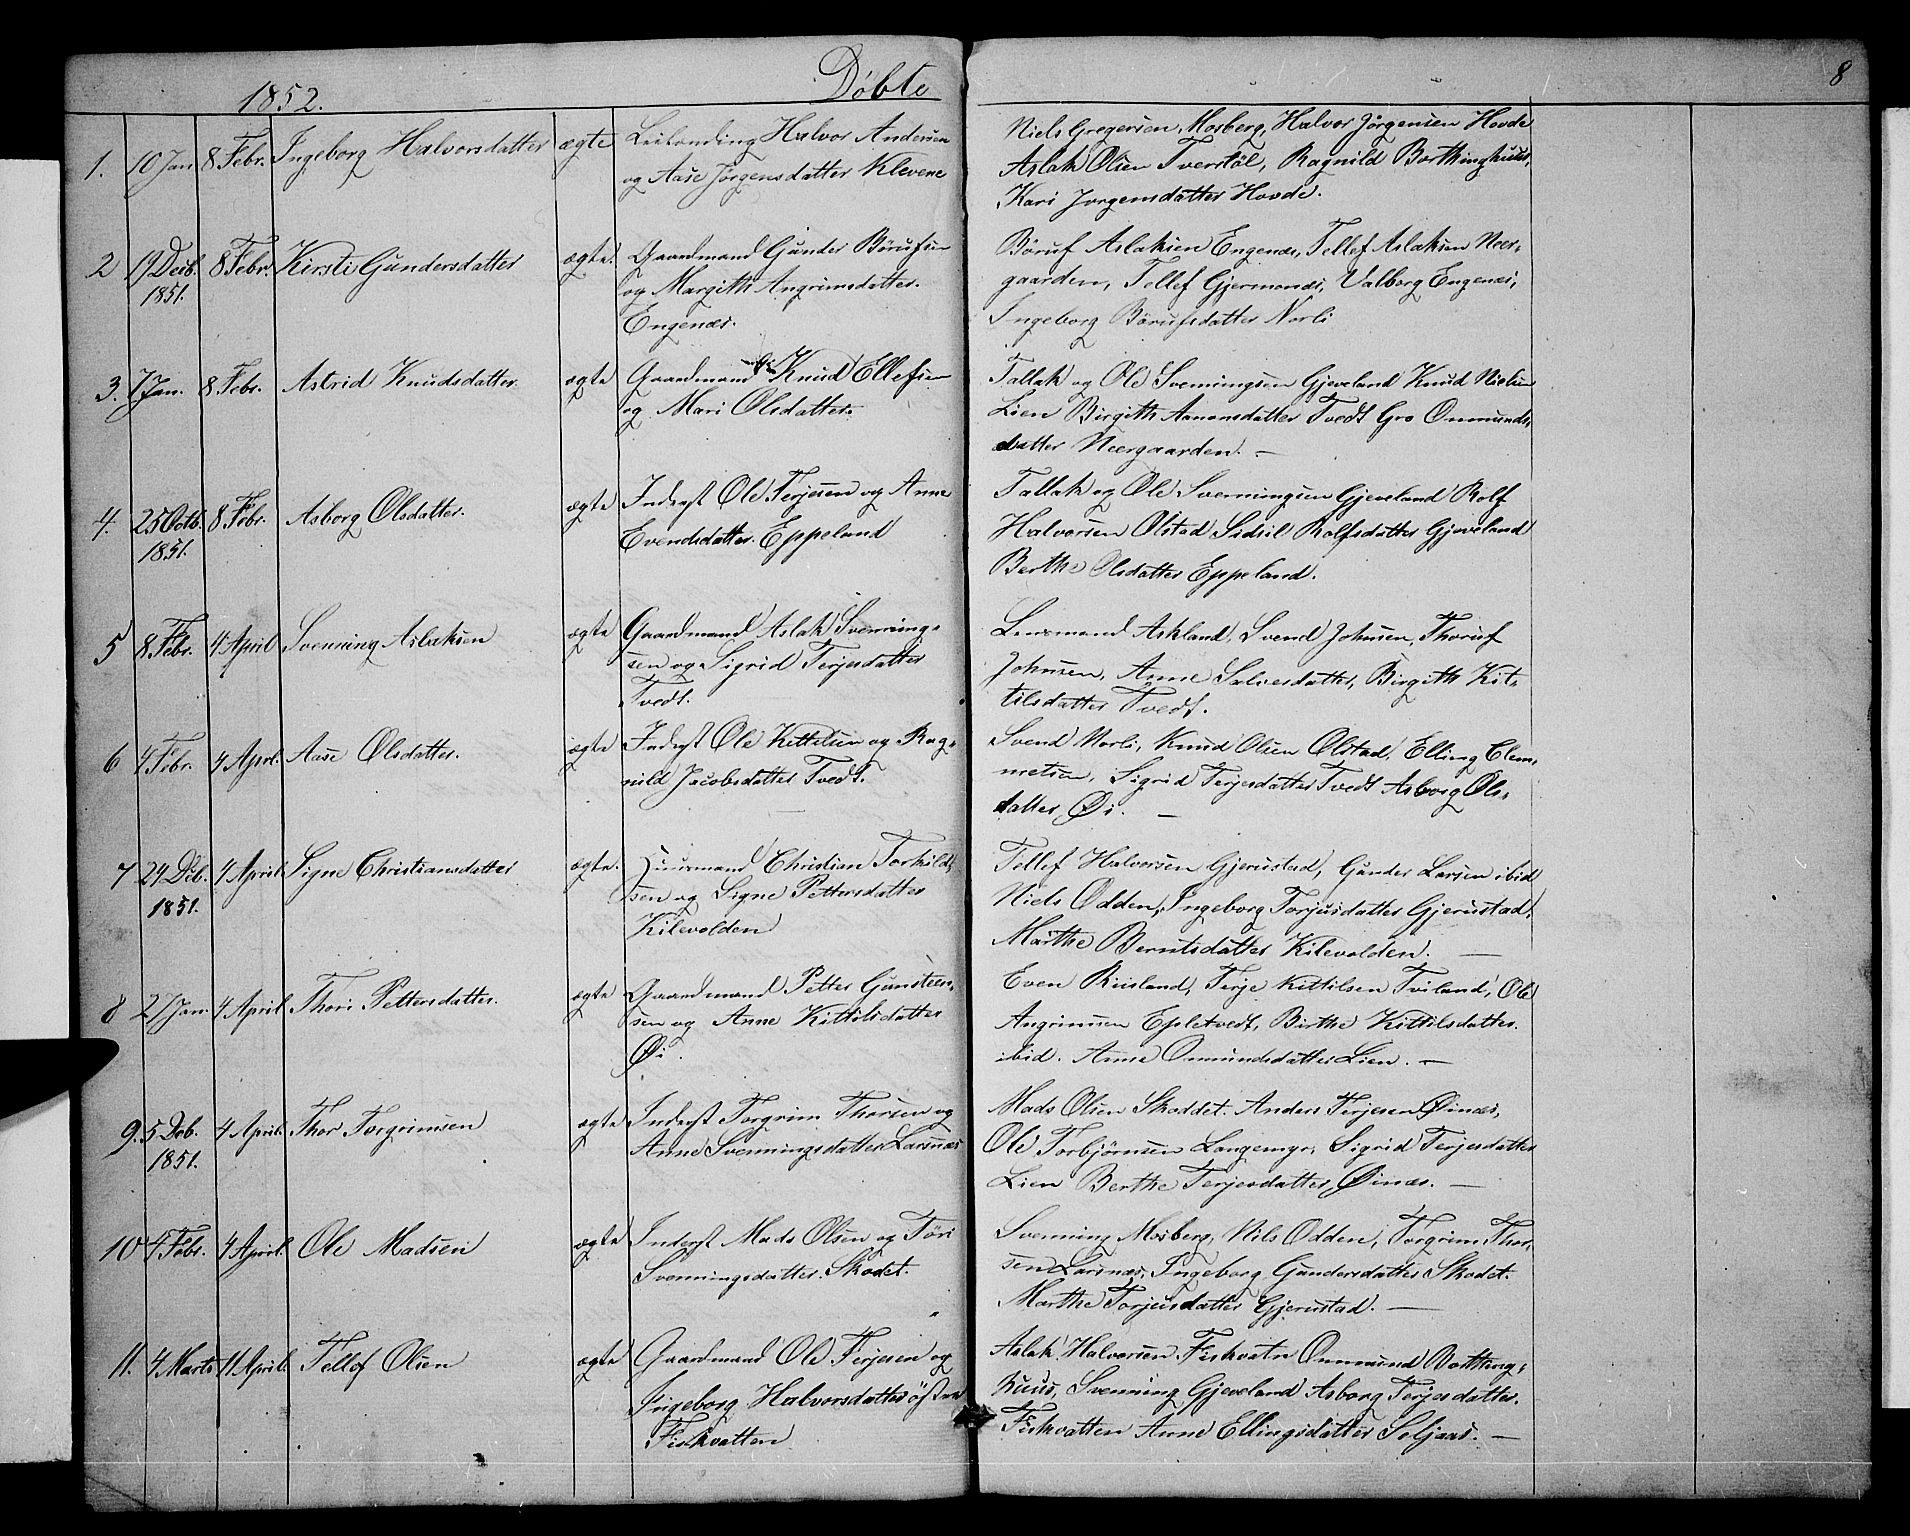 1852.
Døbte
8
1. 10 Jan 8 Febr. Ingeborg Halvorsdatter ægte Leilending Halvor Andersen
og Aase Jørgensdatter Klevene
Niels Gregersen Mosberg, Halvor Jørgensen Hovde
Aslak Olsen Tverstøl, Ragnild
Kari Jorgensdatter Hovde.
2 19 Decb. 8 Febr. Kirsti Gundersdatter ægte. Gaardmand Gunder Børufsen
1851. og Margith Angrimsdatter.
Engenæs.
Børuf Aslaksen Engenæs, Tellef Aslaksen Neer-
gaarden, Tellef Gjermonæs, Valborg Engenæs,
Ingeborg Børufsdatter Norli
3. 7 Jan. 8 Febr. Astrid Knudsdatter. ægte Gaardmand Knud Ellefsen
og Mari Olsdatter.
Tallak og Ole Svenningsen Gjeveland Knud Nielsen
Lien Birgith Aanonsdatter Tvedt Gro Ommunds,
datter Neergaarden. —
4. 25 Octb. 8 Febr. Asborg Olsdatter. ægte Inderst Ole Terjesen og Anne
1851. Evendsdatter. Eppeland
Tallak og Ole Svenningsen Gjeveland Rolf
Halvorsen Olstad Sidsil Rolfsdatter Gjeveland
Berthe Olsdatter Eppeland.
5 8 Febr. 4 April Svenning Aslaksen ægte Gaardmand Aslak Svenning-
sen og Sigrid Terjesdatter
Tvedt.
Lensmand Askland, Svend Johnsen, Thoruf
Johnsen, Anne Salvesdatter, Birgith Kit-
tilsdatter Tvedt.
6 4 Febr. 4 April. Aase Olsdatter. ægte Inderst Ole Kittilsen og Rag-
nild Jacobsdatter Tvedt.
Svend Norli, Knud Olsen Olstad, Elling Clem-
metsen, Sigrid Terjesdatter Tvedt Asborg Ols-
datter, Øi. —
7 24 Deb. 4 April. Signe Christiansdatter ægte. Huusmand Christian Torkild-
1851. sen og Signe Pettersdatter
Kilevolden
Tellef Halvorsen Gjerustad, Gunder Larsen ibid
Niels Odden, Ingeborg Torjusdatter Gjerustad,
Marthe Berntsdatter Kilevolden. —
8 27 Jan. 4 April. Thori Pettersdatter. ægte Gaardmand Petter Gunsteen-
sen og Anne Kittilsdatter
Øi.
Even Risland, Terje Kittilsen Tviland, Ole
Angrimsen Epletvedt, Birthe Kittilsdatter.
ibid. Anne Ommundsdatter Lien. —
9. 5 Deb. 4 April. Thor Torgrimsen ægte Inderst Torgrim Thorsen og
1851. Anne Svenningsdatter Larsnæs
Mads Olsen Skoddet. Anders Terjesen Øinæs,
Ole Torbjørnsen Langemyr, Sigrid Terjesdatter
Lien Berthe Terjesdatter, Øinæs. —
10 4 Febr. 4 April. Ole Madsen ægte Inderst Mads Olsen og Töri
Svenningsdatter. Skodet.
Svenning Mosberg, Nils Odden, Torgrim Thor-
sen Larsnæs, Ingeborg Gundersdatter Skodet.
Marthe Torjusdatter Gjerustad. —
11. 4 Marts 11 April. Tellef Olsen ægte Gaardmand Ole Terjesen og
Ingeborg Halvorsdatter
Fiskvatten
Aslak Halvorsen Fiskvatn Ommund Botting-
huus, Svenning Gjeveland Asborg Terjesdatter.
Fiskvatten Anne Ellingsdatter Seljaas. —